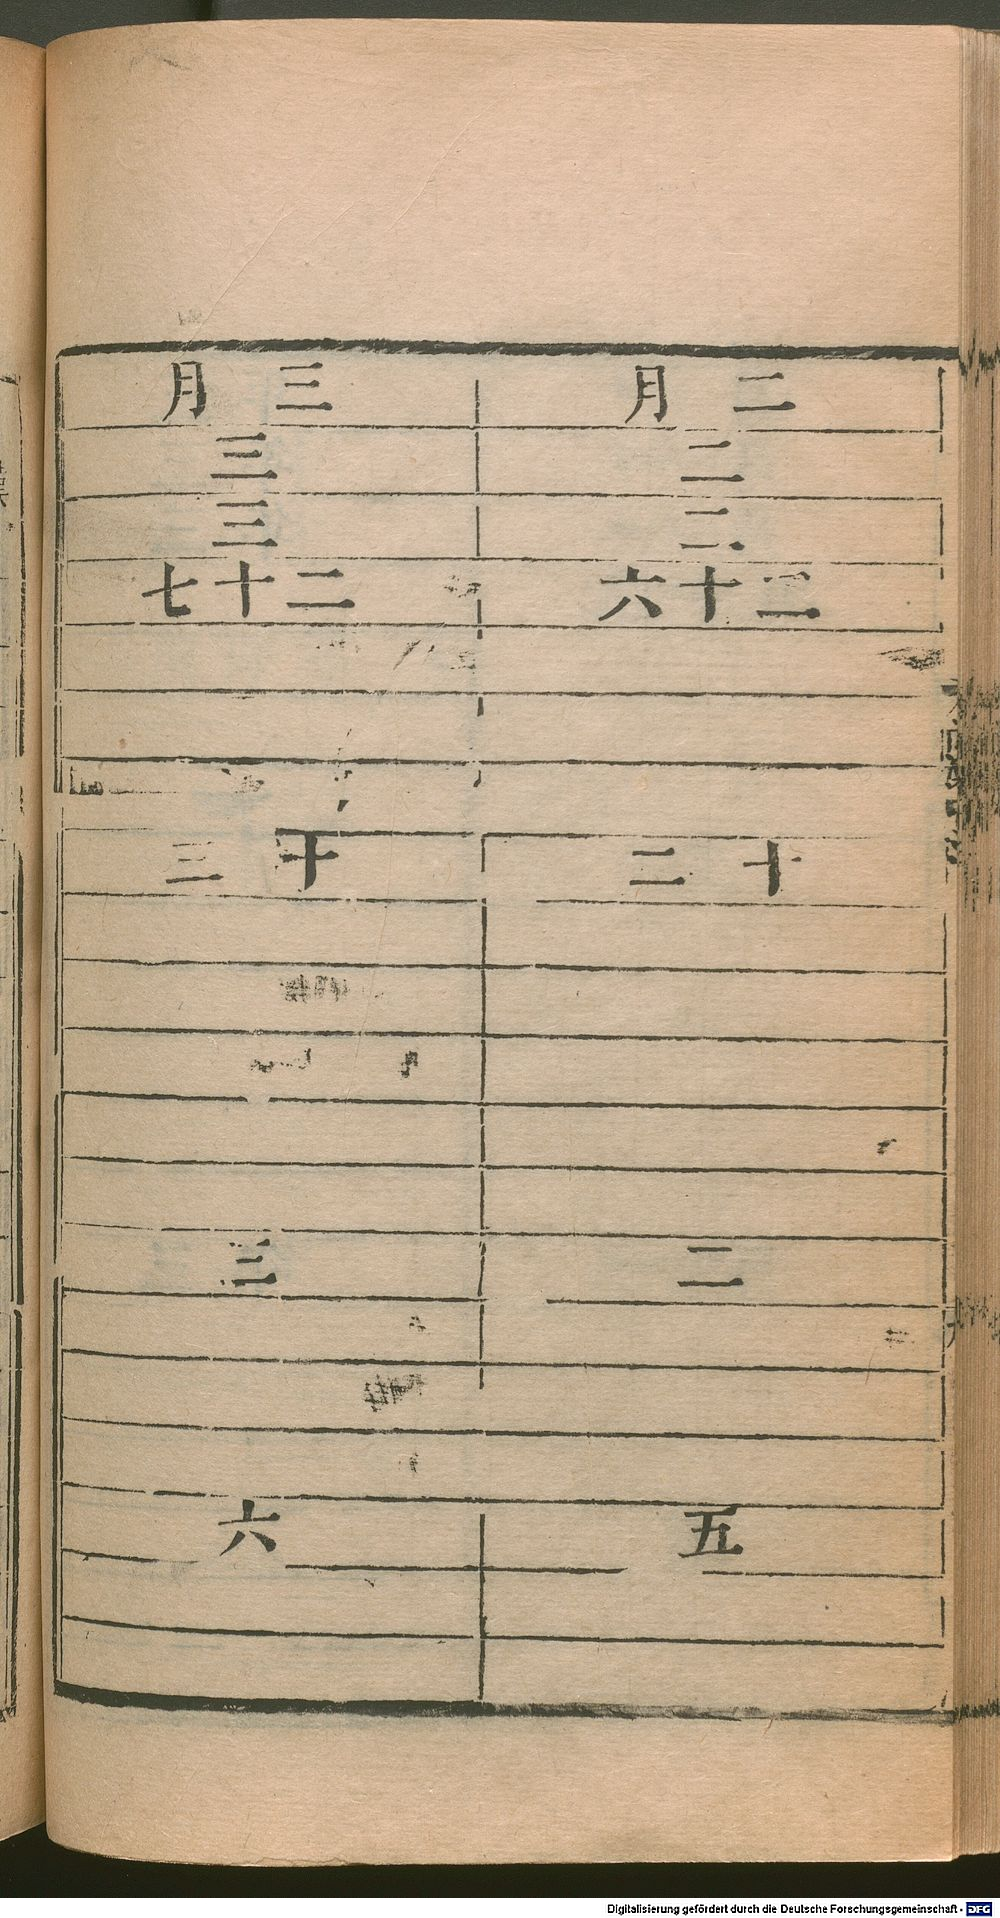 二月
二
二
二十六
十二
二
五
三月
三
三
二十七
十三
三
六
Digitalisierung gefördert durch die Deutsche Forschungsgemeinschaft - DFG